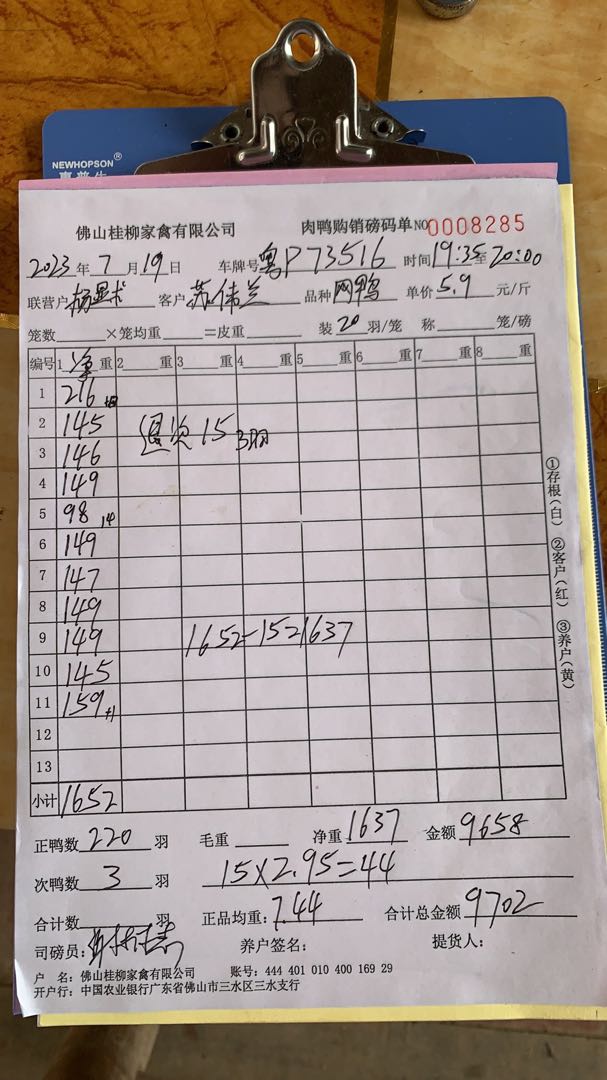 NEWHOPSON®
佛山桂柳家禽有限公司 肉鸭购销磅码单 NO 0008285
2023年7月19日 车牌号粤P73516 时间19:35至20:00
联营户 客户苏伟兰 品种 单价5.9元/斤
笼数 ×笼均重 =皮重 装20羽/笼 称 笼/磅
编号 1净重 2 重 3 重 4 重 5 重 6 重 7 重 8 重
1 216
2 145 退次15 3羽
3 146
4 149
5 98 14
6 149
7 147
8 149
9 149 1652-15=1637
10 145
11 159 +1
12
13
小计 1652
①存根(白) ②客户(红) ③养户(黄)
正鸭数220羽 毛重 净重1637 金额9658
次鸭数3羽 15×2.95=44
合计数 羽 正品均重:7.44 合计总金额9702
司磅员: 养户签名: 提货人:
户 名:佛山桂柳家禽有限公司 账号:444 401 010 400 169 29
开户行:中国农业银行广东省佛山市三水区三水支行